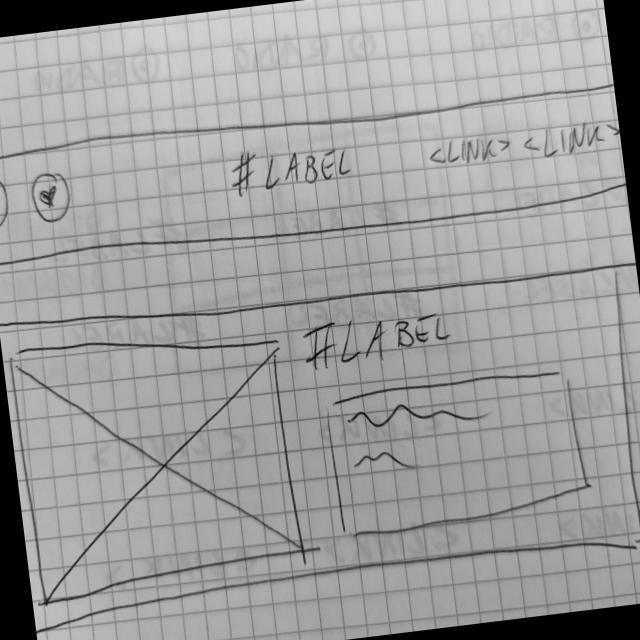 #LABEL <LINK> <LINK>
#LABEL